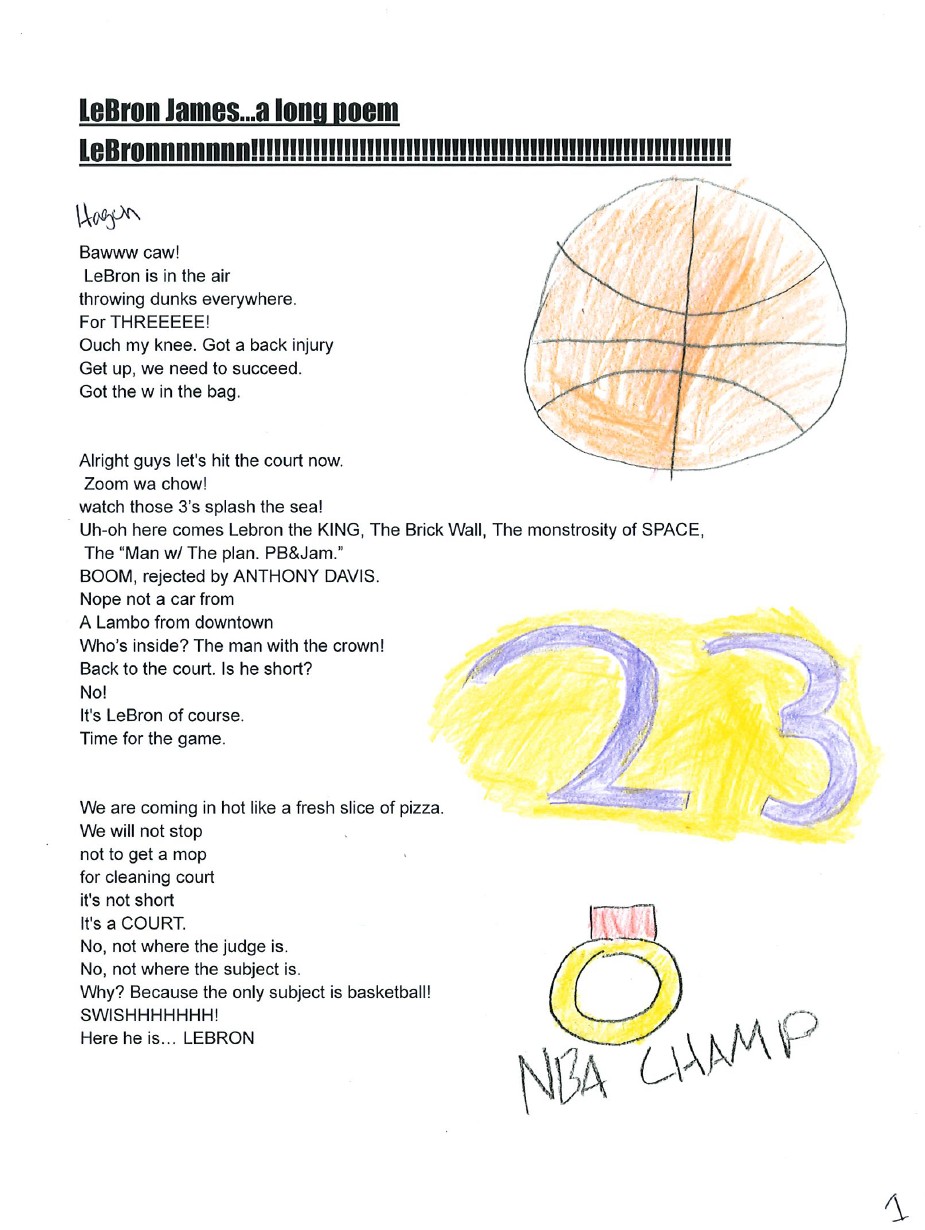 LeBron James...a long poem
LeBronnnnnnnn!!!!!!!!!!!!!!!!!!!!!!!!!!!!!!!!!!!!!!!!!!!!!!!!!!!!!!!!!!!!!!
Hagen
Bawww caw!
LeBron is in the air
throwing dunks everywhere.
For THREEEEE!
Ouch my knee. Got a back injury
Get up, we need to succeed.
Got the w in the bag.
Alright guys let's hit the court now.
Zoom wa chow!
watch those 3's splash the sea!
Uh-oh here comes Lebron the KING, The Brick Wall, The monstrosity of SPACE,
The “Man w/ The plan. PB&Jam.”
BOOM, rejected by ANTHONY DAVIS.
Nope not a car from
A Lambo from downtown
Who's inside? The man with the crown!
Back to the court. Is he short?
No!
It's LeBron of course.
Time for the game.
23
We are coming in hot like a fresh slice of pizza.
We will not stop
not to get a mop
for cleaning court
it's not short
It's a COURT.
No, not where the judge is.
No, not where the subject is.
Why? Because the only subject is basketball!
SWISHHHHHHH!
Here he is… LEBRON
NBA CHAMP
1